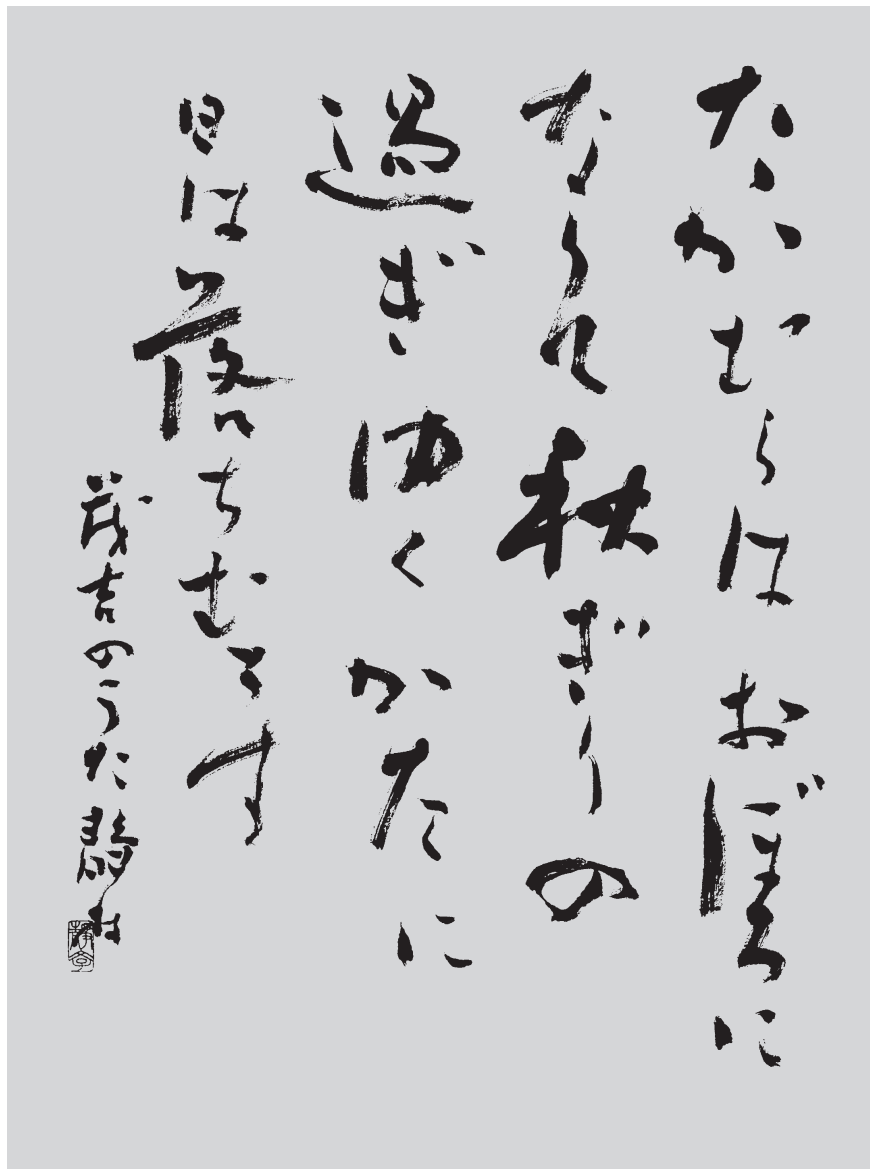 たかむらは おぼろに
なりて秋ぎりの
過ぎゆくかたに
日は落ちむとす
茂吉のうた